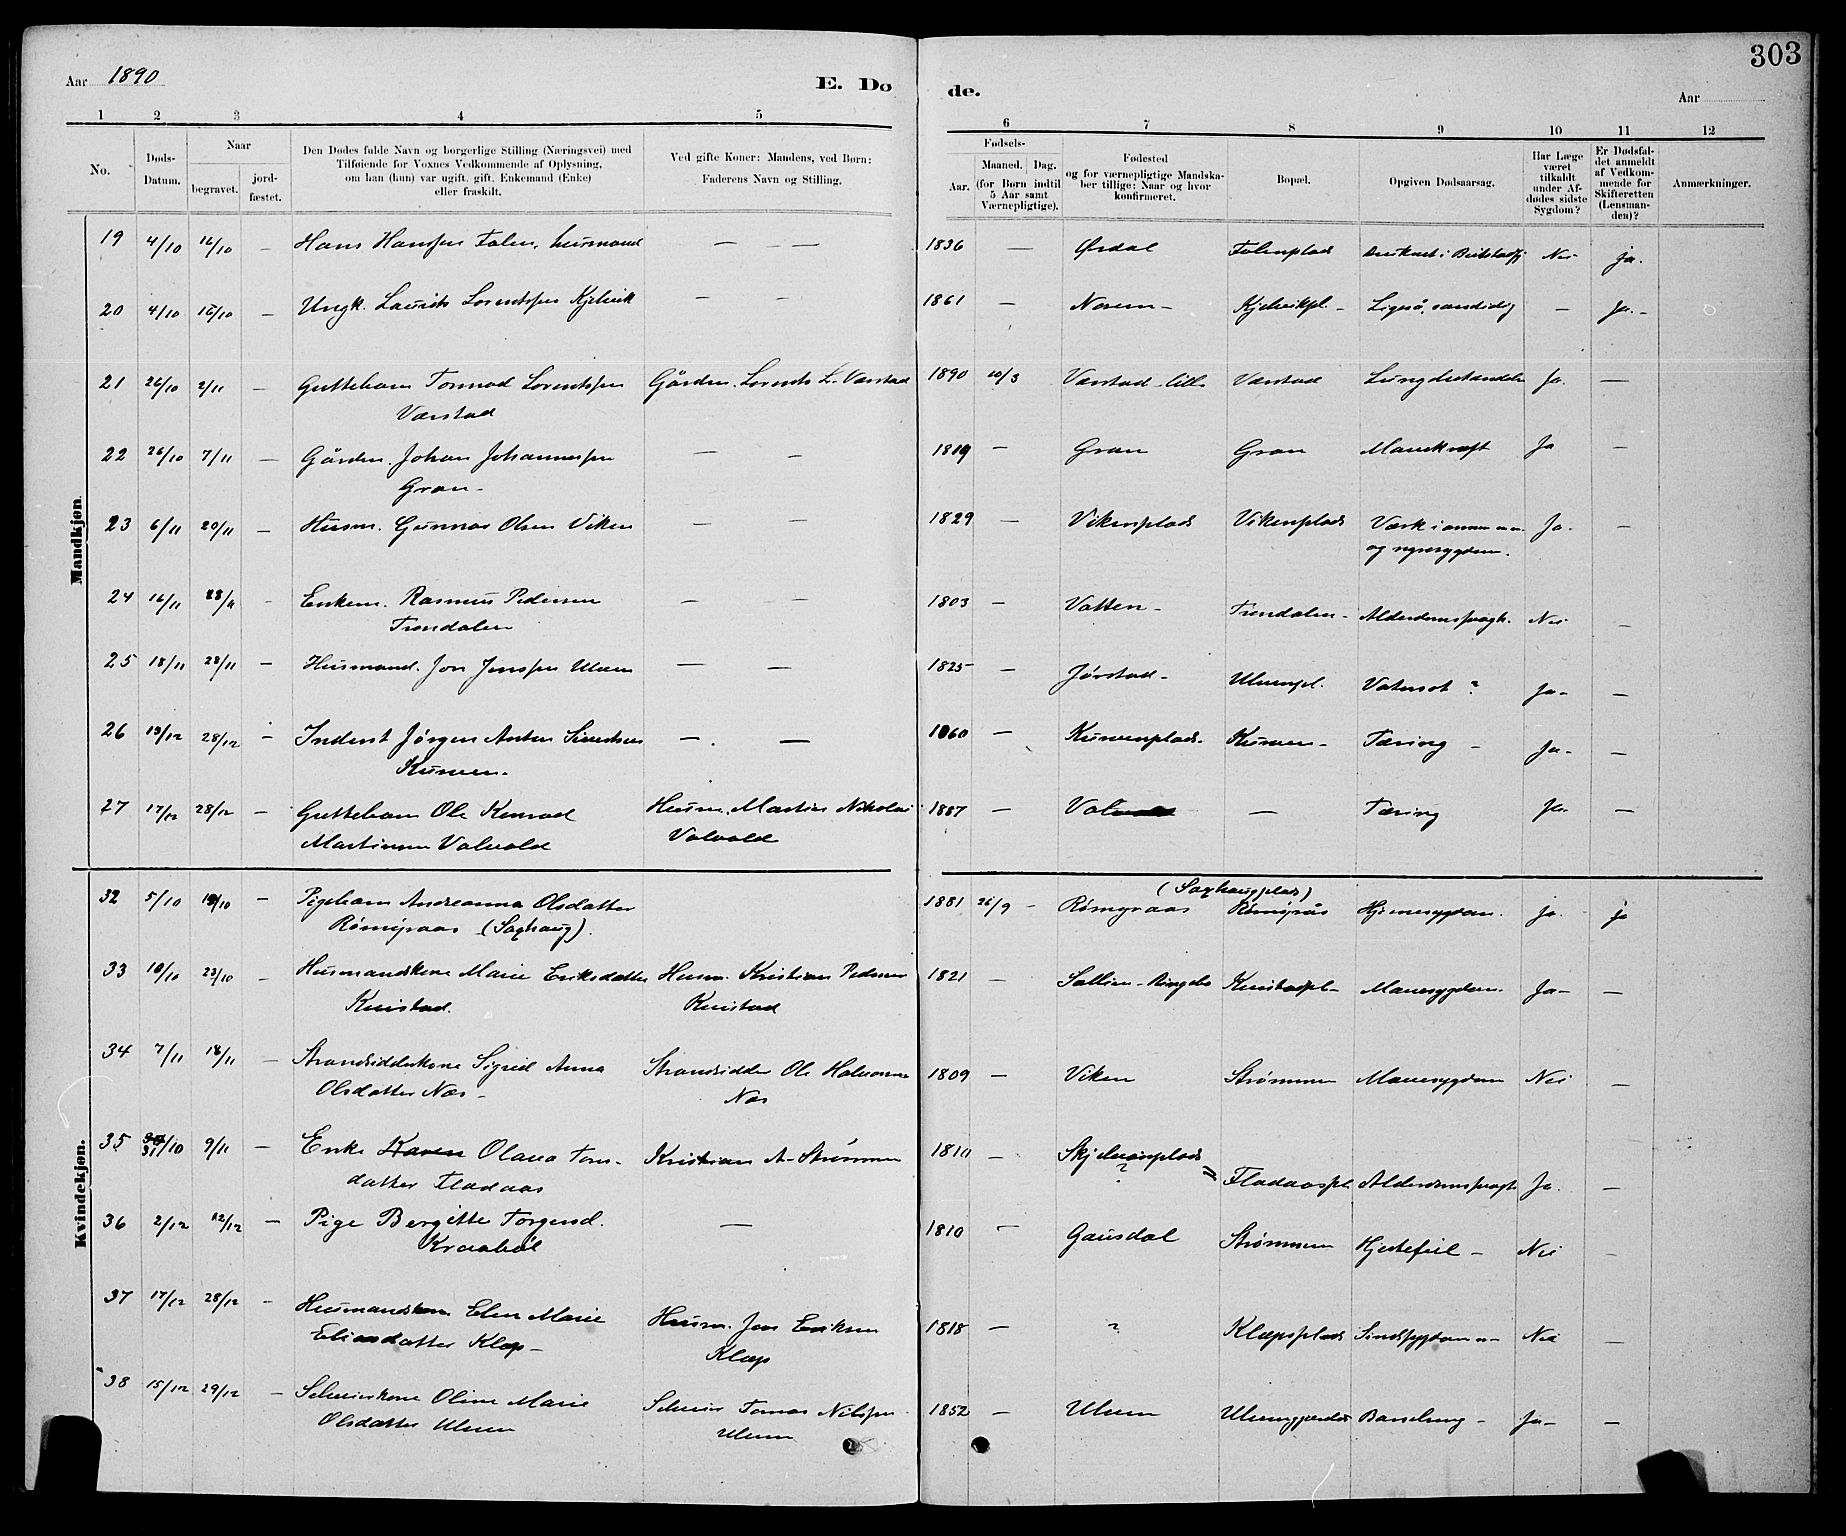 303
Aar 1890
E. Dø
de.
Aar
1 2 3 4 5 6 7 8 9 10 11 12
No.
Døds-Datum.
Naar
begravet.
jord-fæstet.
Den Dødes fulde Navn og borgerlige Stilling (Næringsvei) med
Tilføiende for Voxnes Vedkommende af Oplysning,
om han (hun) var ugift, gift, Enkemand (Enke)
eller fraskilt.
Ved gifte Koner: Mandens, ved Børn:
Faderens Navn og Stilling.
Fødsels-
Aar.
Maaned. Dag.
(for Børn indtil
5 Aar samt
Værnepligtige).
Fødested
og for værnepligtige Mandska-
ber tillige: Naar og hvor
konfirmeret.
Bopæl.
Opgiven Dødsaarsag.
Har Læge
været
tilkaldt
under Af-
dødes sidste
Sygdom?
Er Dødsfal-
det anmeldt
af Vedkom-
mende for
Skifteretten
(Lensman-
den)?
Anmærkninger.
Mandkjøn.
19 4/10 16/10 — Hans Hansen Folen, husmand — — 1836 — Ørdal Folenplads Druknet i Nei ja.
20 4/10 15/10 — Ungk. Laurits Lorentssen Kjelvik — — 1861 — Norem — Kjelvikpl. — Ligeså, samtidig — Ja. —
21 26/10 2/11 — Guttebarn Tormod Lorentssen Gårdbr. Lorents L. Værstad 1890 10/3 Værstad lille Værstad Lungebetændelse Ja. —
Værstad
22 26/10 7/11 — Gårdbr. Johan Johannessen — — 1819 — Gran Gran Mavekræft Ja —
Gran —
23 6/11 20/11 — Husm. Gunnar Olsen Viken — — 1829 — Vikenplads Vikenplads Værk i armen Ja. —
og nyresygdom.
24 16/11 28/11 — Enkem. Rasmus Pedersen — — 1803 — Vatten — Trondalen — Alderdomssvagh. Nei —
Trondalen
25 18/11 28/11 — Husmand. Jon Jenssen Ulven — — 1825 — Jørstad — Ulvenpl. Vatersot ? Ja — —
26 19/12 28/12 — Inderst Jørgen Anton Sivertsen — — 1860 — Kurvenplads — Kurven — Tæring — Ja — —
Kurven —
27 17/12 28/12 — Guttebarn Ole Konrad Husm. Martin Nikolai 1887 — Valvold — Tæring Ja. —
Martinsen Valvold Valvold
Kvindekjøn.
(Saxhaugplads)
32 5/10 19/10 — Pigebarn Andreanna Olsdatter 1881 26/9 — Rømgraas Rømgrås Hjernesygdom. Ja. Ja
Rømgraas (Saxhaug).
33 10/10 23/10 — Husmandskone Marie Eriksdatter Husm. Kristian Pedersen 1821 — Sallien — Ringebo Knistadpl — Mavesygdom. Ja — —
Knistad. Knistad
34 7/11 18/11 — Strandsidderkone Sigrid Anna Strandsidder Ole Halvorsen 1809 — Viken Strømmen Mavesygdom Nei —
Olsdatter Næs — Næs
35 31/10 9/11 — Enke Karen Olava Tors- Kristian A. Strømmen 1810 — Skjelvanplads ? = Fladaaspl Alderdomssvagh Ja. —
datter Fladaas
36 2/12 12/12 — Pige Bergitte Torgersd. — 1810 — Gausdal Strømmen Hjertefeil — Nei —
Kraabøl
37 17/12 28/12 — Husmandskone Elen Marie Husm. Jon Eriksen 1818 — ? Klæpsplads Sindssygdom Nei —
Eliasdatter Klæp — Klæp
38 15/12 29/12 — Selveierkone Oline Marie Selveier Tomas Nilssen 1852 — Ulven Ulvengjerdet Barselseng — Ja — —
Olsdatter Ulven Ulven